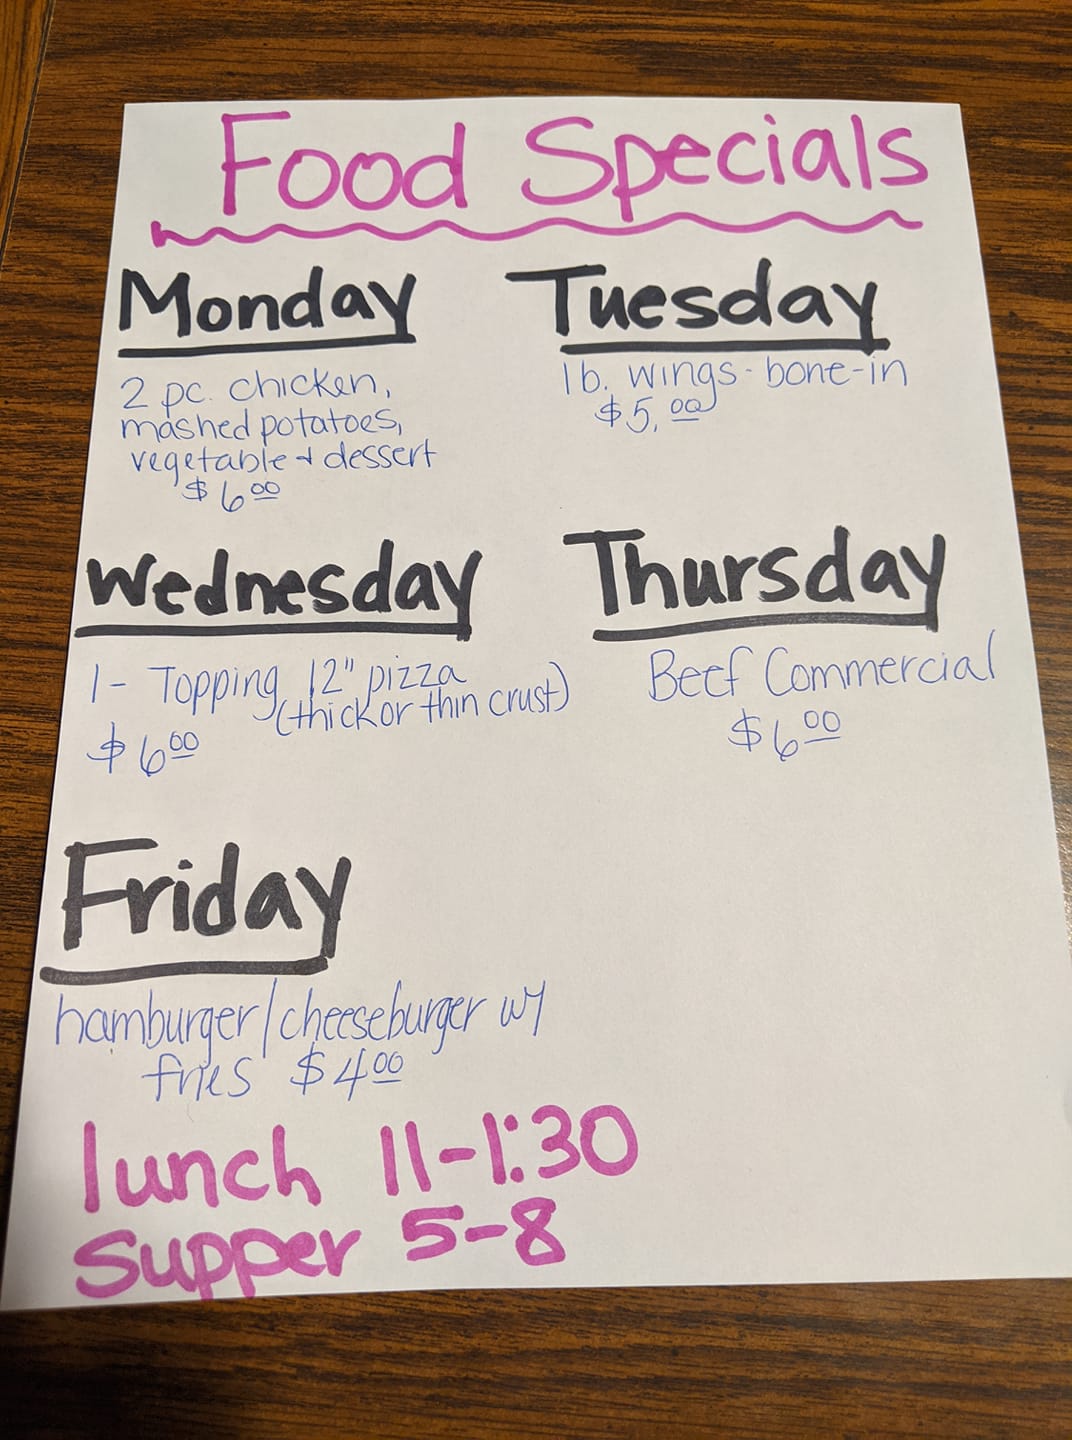 Food Specials
Monday
2 pc. chicken,
mashed potatoes,
vegetable & dessert
$6.00
Tuesday
1b. wings - bone-in
$5.00
Wednesday
1- Topping 12" pizza
(thick or thin crust)
$6.00
Thursday
Beef Commercial
$6.00
Friday
hamburger/cheeseburger w/
fries $4.00
lunch 11-1:30
Supper 5-8